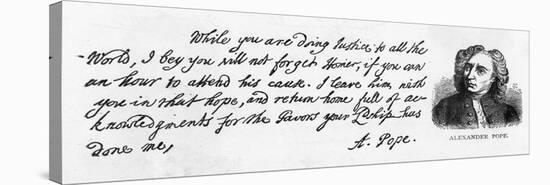 While you are doing Justice to all the
World, I beg you will not forget Homer, if you can
an hour to attend his cause. I leave him, with
you in that hope, and return home full of ac-
knowledgments for the Favors your Ldship has
done me,
A. Pope.
ALEXANDER POPE.